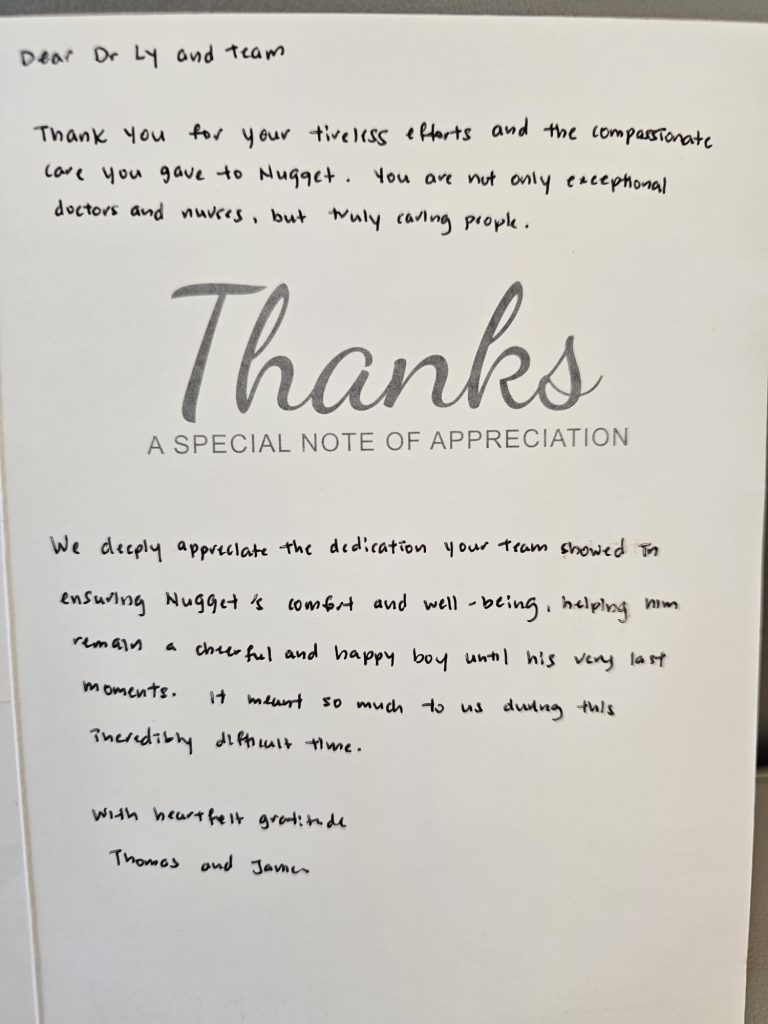 Dear Dr Ly and team
Thank you for your tireless efforts and the compassionate
care you gave to Nugget. You are not only exceptional
doctors and nurses, but truly caring people.
Thanks
A SPECIAL NOTE OF APPRECIATION
We deeply appreciate the dedication your team showed in
ensuring Nugget's comfort and well-being, helping him
remain a cheerful and happy boy until his very last
moments. It meant so much to us during this
incredibly difficult time.
With heartfelt gratitude
Thomas and James